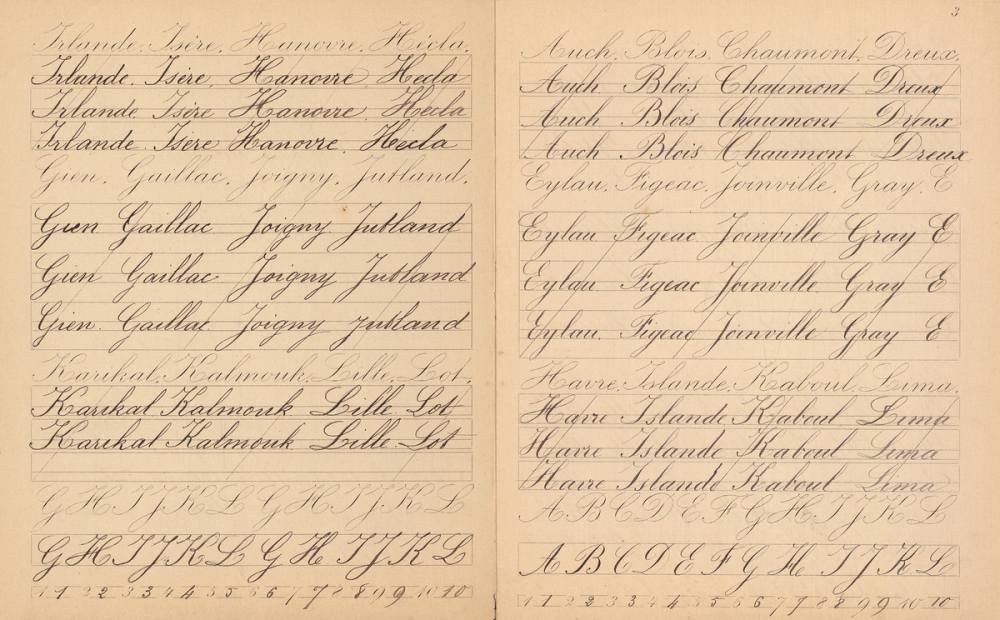 Irlande. Isère. Hanovre. Hécla.
Irlande. Isère. Hanovre Hecla
Irlande Isère Hanovre. Hecla
Irlande. Isère Hanovre. Hecla
Gien. Gaillac. Joigny. Jutland.
Gien Gaillac Joigny Jutland
Gien Gaillac Joigny Jutland
Gien. Gaillac Joigny Jutland
Karikal. Kalmouk. Lille. Lot.
Karikal Kalmouk Lille Lot
Karikal Kalmouk Lille Lot
G H I J K L G H I J K L
G H I J K L G H I J K L
1 1 2 2 3 3 4 4 5 5 6 6 7 7 8 8 9 9 10 10
3
Auch. Blois. Chaumont. Dreux.
Auch Blois Chaumont Dreux
Auch Blois Chaumont Dreux
Auch Blois Chaumont Dreux
Eylau. Figeac. Joinville. Gray. E
Eylau Figeac Joinville Gray E
Eylau Figeac Joinville Gray E
Eylau. Figeac Joinville Gray E
Havre. Islande. Kaboul. Lima.
Havre Islande Kaboul Lima
Havre Islande Kaboul Lima
Havre Islande Kaboul Lima
A B C D E F G H I J K L
A B C D E F G H I J K L
1 1 2 2 3 3 4 4 5 5 6 6 7 7 8 8 9 9 10 10